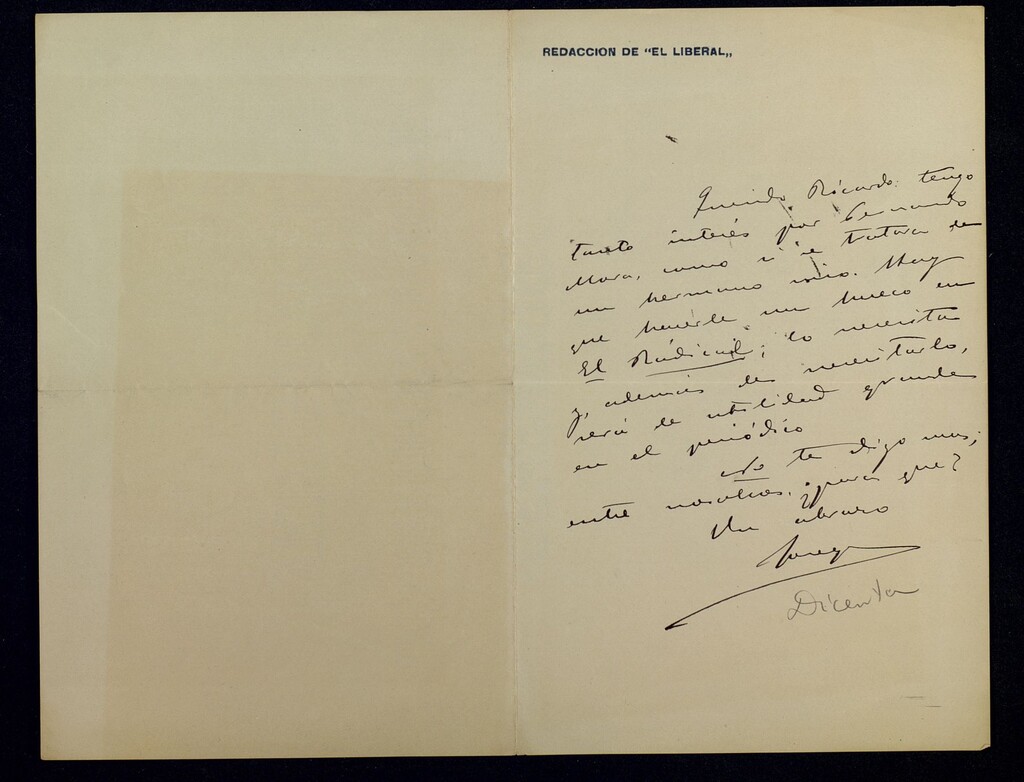 REDACCION DE "EL LIBERAL„
Querido Ricardo: tengo
tanto interés por Fernando
Mora, como si se tratara de
un hermano mio. Hay
que hacerle un hueco en
El Radical; lo necesita
y, además de necesitarlo,
será de utilidad grande
en el periódico
No te digo mas;
entre nosotros, ¿para que?
Un abrazo
Dicenta